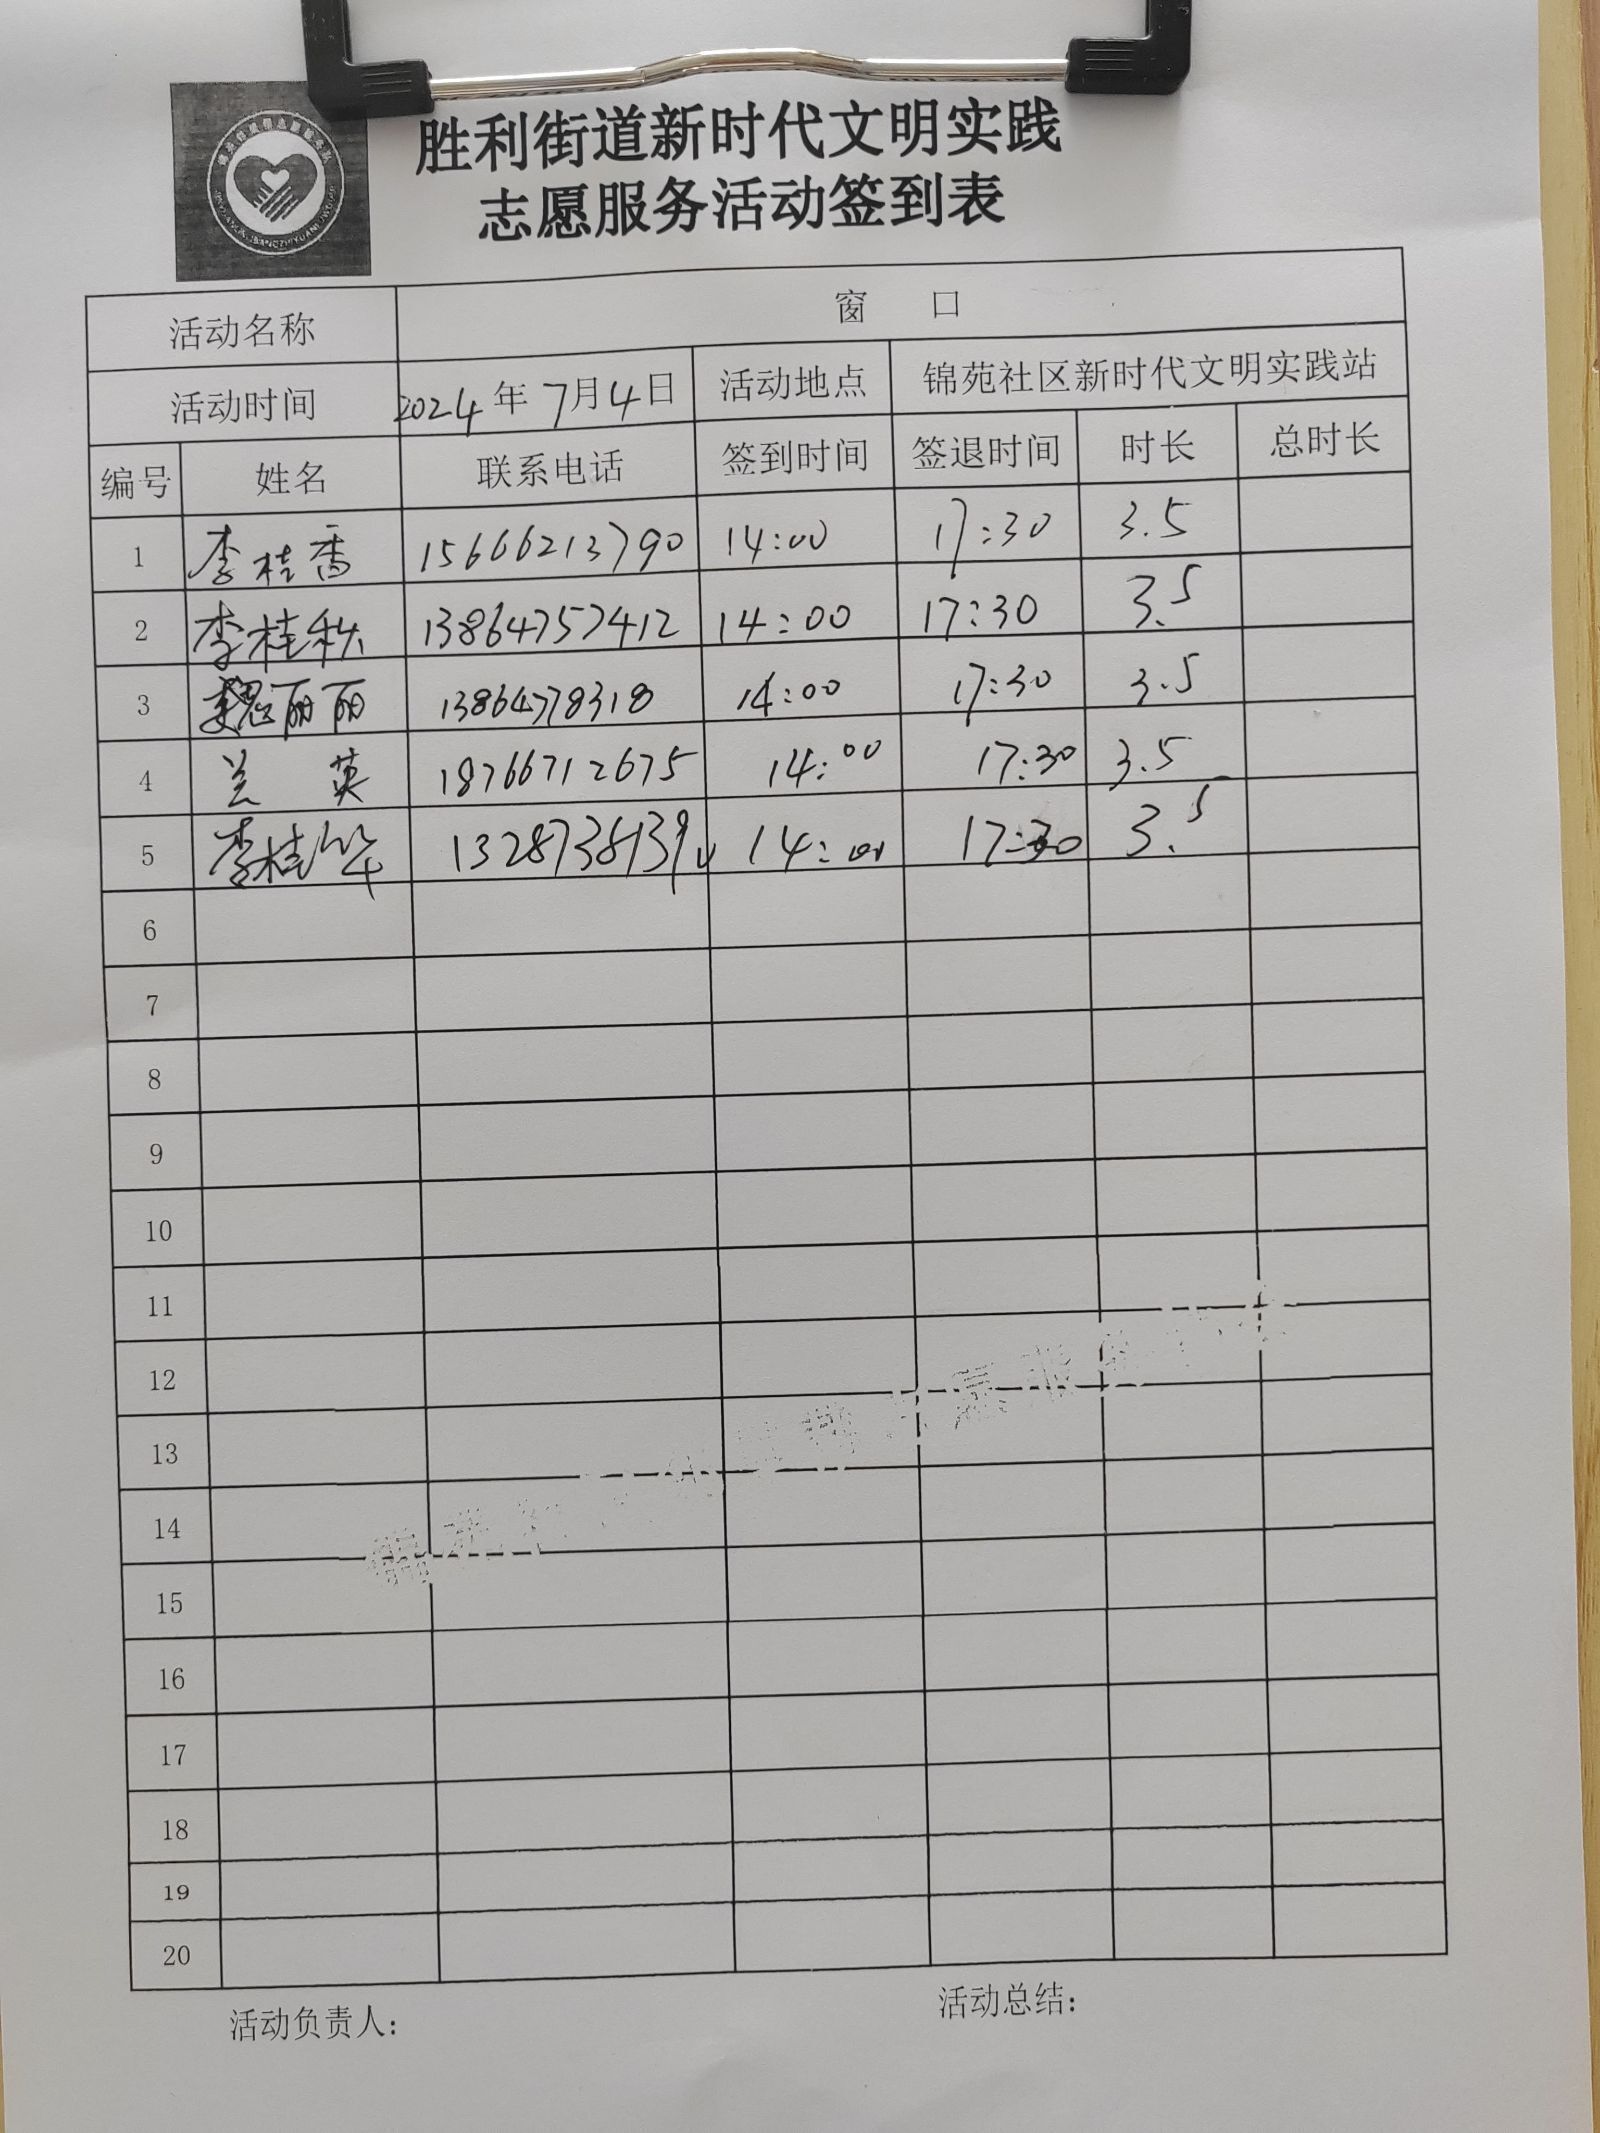 胜利街道新时代文明实践
志愿服务活动签到表
活动名称 窗 口
活动时间 2024年7月4日 活动地点 锦苑社区新时代文明实践站
编号 姓名 联系电话 签到时间 签退时间 时长 总时长
1 李桂香 15666213790 14:00 17:30 3.5
2 李桂秋 13864757412 14:00 17:30 3.5
3 魏丽丽 13864778318 14:00 17:30 3.5
4 兰 英 18766712675 14:00 17:30 3.5
5 李桂华 14:00 17:30 3.5
6
7
8
9
10
11
12
13
14
15
16
17
18
19
20
活动负责人: 活动总结: